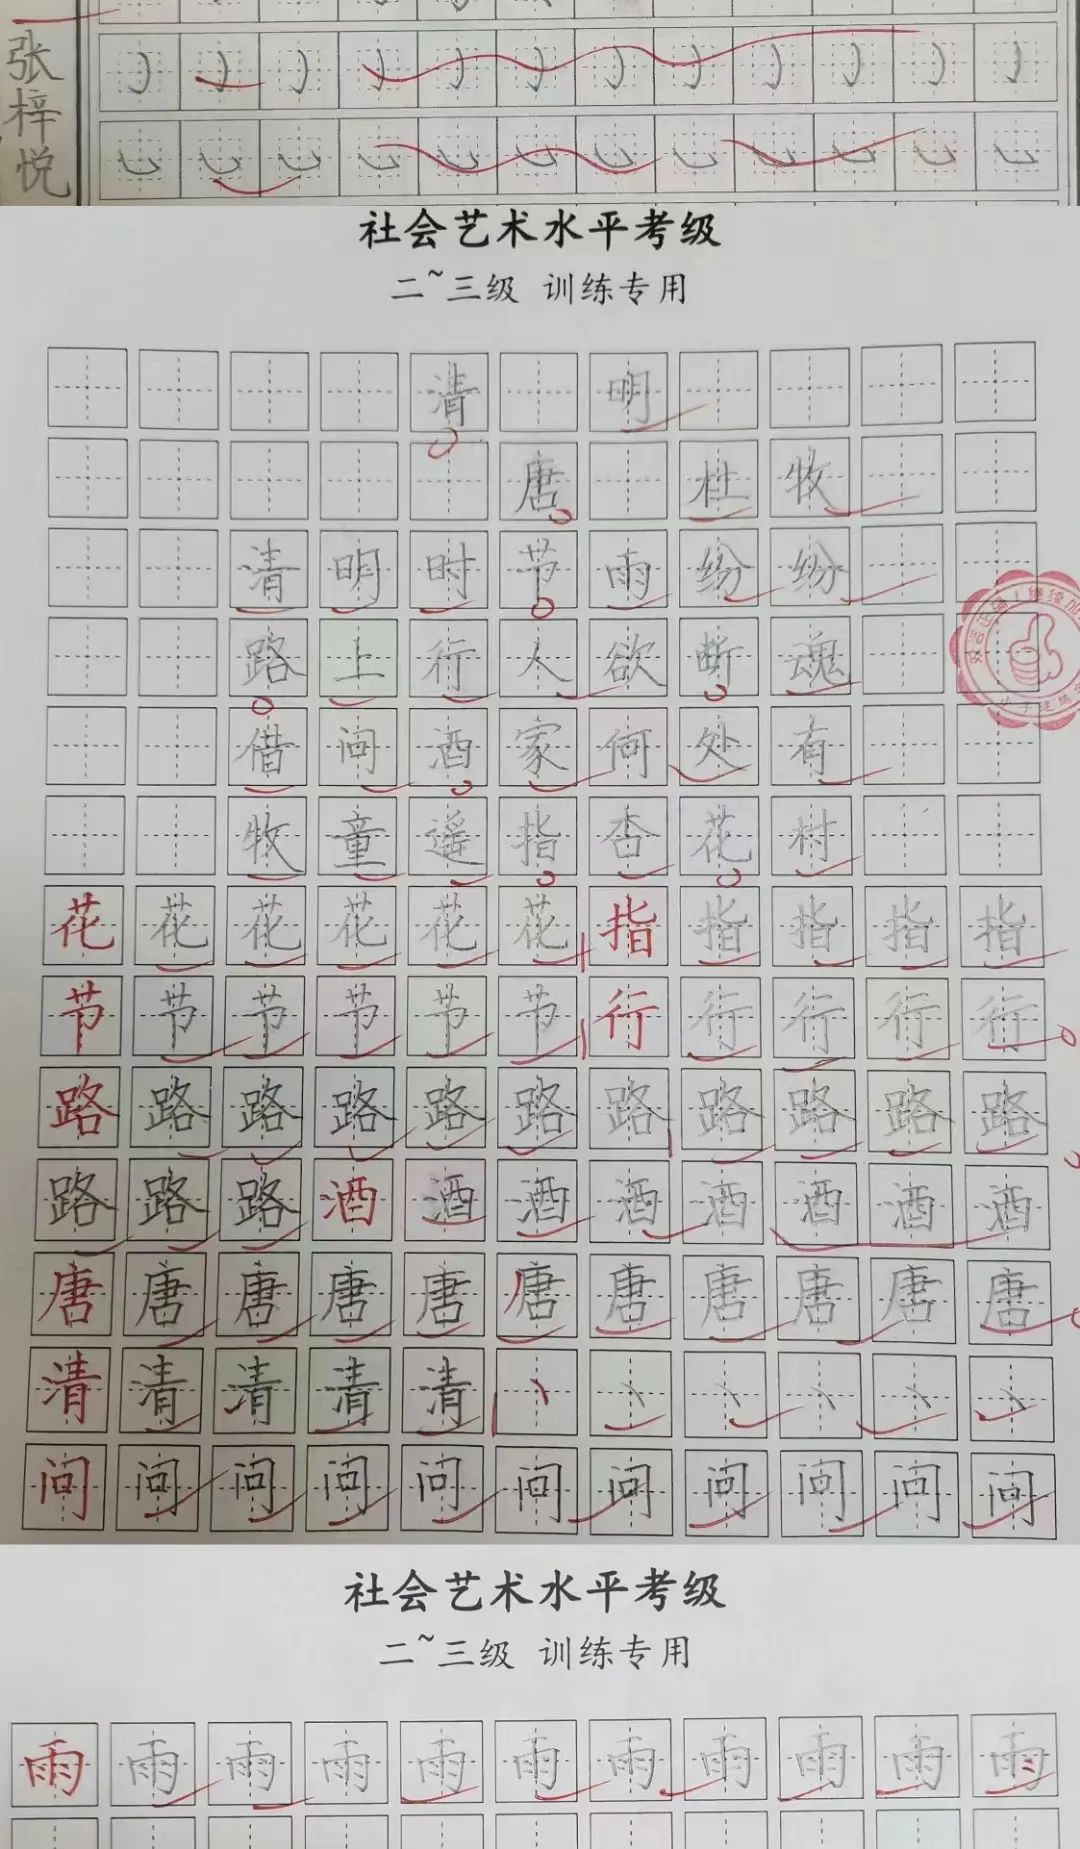 张梓悦
社会艺术水平考级
二~三级 训练专用
清 明
唐 杜牧
清明时节雨纷纷
路上行人欲断魂
借问酒家何处有
牧童遥指杏花村
花花花花花花指指指指指
节节节节节节行行行行行
路路路路路路路路路路路
路路路酒酒酒酒酒酒酒酒
唐唐唐唐唐唐唐唐唐唐唐
清清清清清
问问问问问问问问问问问
社会艺术水平考级
二~三级 训练专用
雨雨雨雨雨雨雨雨雨雨雨